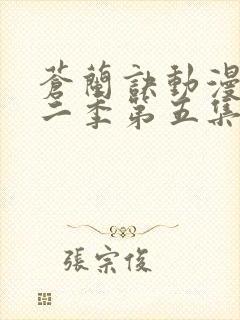 蒼蘭訣動漫
二季第五集
張宗俊